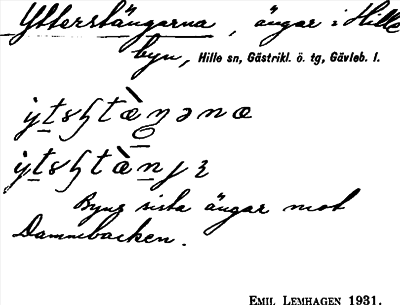 Ytterstängarna, ängar i Hille
byn, Hille sn, Gästrikl. ö. tg, Gävleb. l.
Byns sista ängar mot
Dammebacken.
EMIL LEMHAGEN 1931.